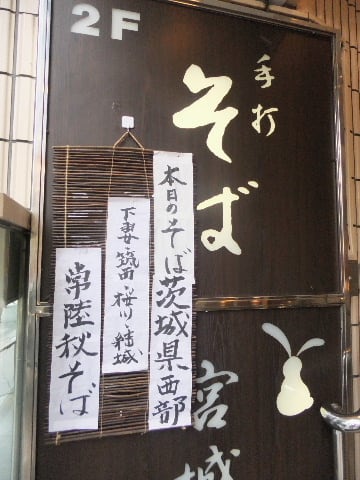 2F
手打
そば
本日のそば茨城県西部
下妻・筑西・桜川・結城
常陸秋そば
宮城